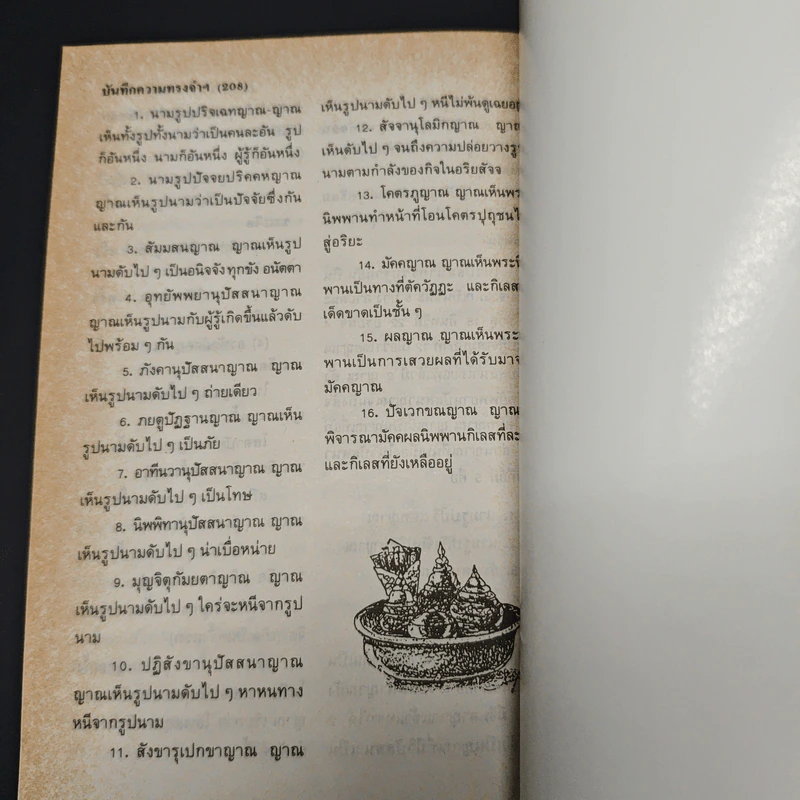 บันทึกความทรงจำฯ (208)
1. นามรูปปริจเฉทญาณ-ญาณ
เห็นทั้งรูปทั้งนามว่าเป็นคนละอัน รูป
ก็อันหนึ่ง นามก็อันหนึ่ง ผู้รู้ก็อันหนึ่ง
2. นามรูปปัจจยปริคคหญาณ
ญาณเห็นรูปนามว่าเป็นปัจจัยซึ่งกัน
และกัน
3. สัมมสนญาณ ญาณเห็นรูป
นามดับไป ๆ เป็นอนิจจังทุกขัง อนัตตา
4. อุทยัพพยานุปัสสนาญาณ
ญาณเห็นรูปนามกับผู้รู้เกิดขึ้นแล้วดับ
ไปพร้อม ๆ กัน
5. ภังคานุปัสสนาญาณ ญาณ
เห็นรูปนามดับไป ๆ ถ่ายเดียว
6. ภยตูปัฏฐานญาณ ญาณเห็น
รูปนามดับไป ๆ เป็นภัย
7. อาทีนวานุปัสสนาญาณ ญาณ
เห็นรูปนามดับไป ๆ เป็นโทษ
8. นิพพิทานุปัสสนาญาณ ญาณ
เห็นรูปนามดับไป ๆ น่าเบื่อหน่าย
9. มุญจิตุกัมยตาญาณ ญาณ
เห็นรูปนามดับไป ๆ ใคร่จะหนีจากรูป
นาม
10. ปฏิสังขานุปัสสนาญาณ
ญาณเห็นรูปนามดับไป ๆ หาหนทาง
หนีจากรูปนาม
11. สังขารุเปกขาญาณ ญาณ
เห็นรูปนามดับไป ๆ หนีไม่พ้นดูเฉยอยู่
12. สัจจานุโลมิกญาณ
เห็นดับไป ๆ จนถึงความปล่อยวาง
นามตามกำลังของกิจในอริยสัจจ
13. โคตรภูญาณ ญาณเห็นพระ
นิพพานทำหน้าที่โอนโคตรปุถุชน
สู่อริยะ
14. มัคคญาณ ญาณเห็นพระ
พานเป็นทางที่ตัดวัฏฏะ และกิเลส
เด็ดขาดเป็นชั้น ๆ
15. ผลญาณ ญาณเห็นพระ
พานเป็นการเสวยผลที่ได้รับมาจ
มัคคญาณ
16. ปัจเวกขณญาณ ญาณ
พิจารณามัคคผลนิพพานกิเลสที่ละ
และกิเลสที่ยังเหลืออยู่